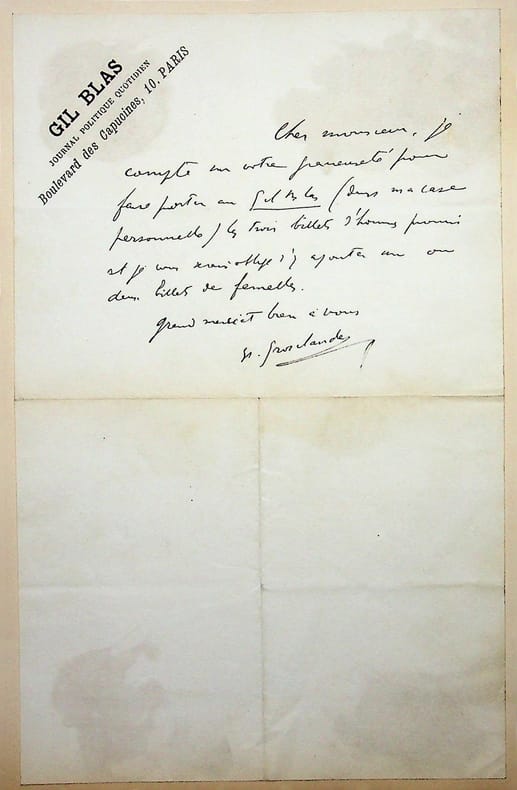 GIL BLAS
JOURNAL POLITIQUE QUOTIDIEN
Boulevard des Capucines, 10. PARIS
Cher monsieur, je
compte sur votre pour
faire porter au Gil Blas (dans ma case
personnelle) les trois billets d'hommes promis
et je vous serais obligé d'y ajouter un ou
deux billets de femelles.
Grand merci et bien à vous
Grosclaude